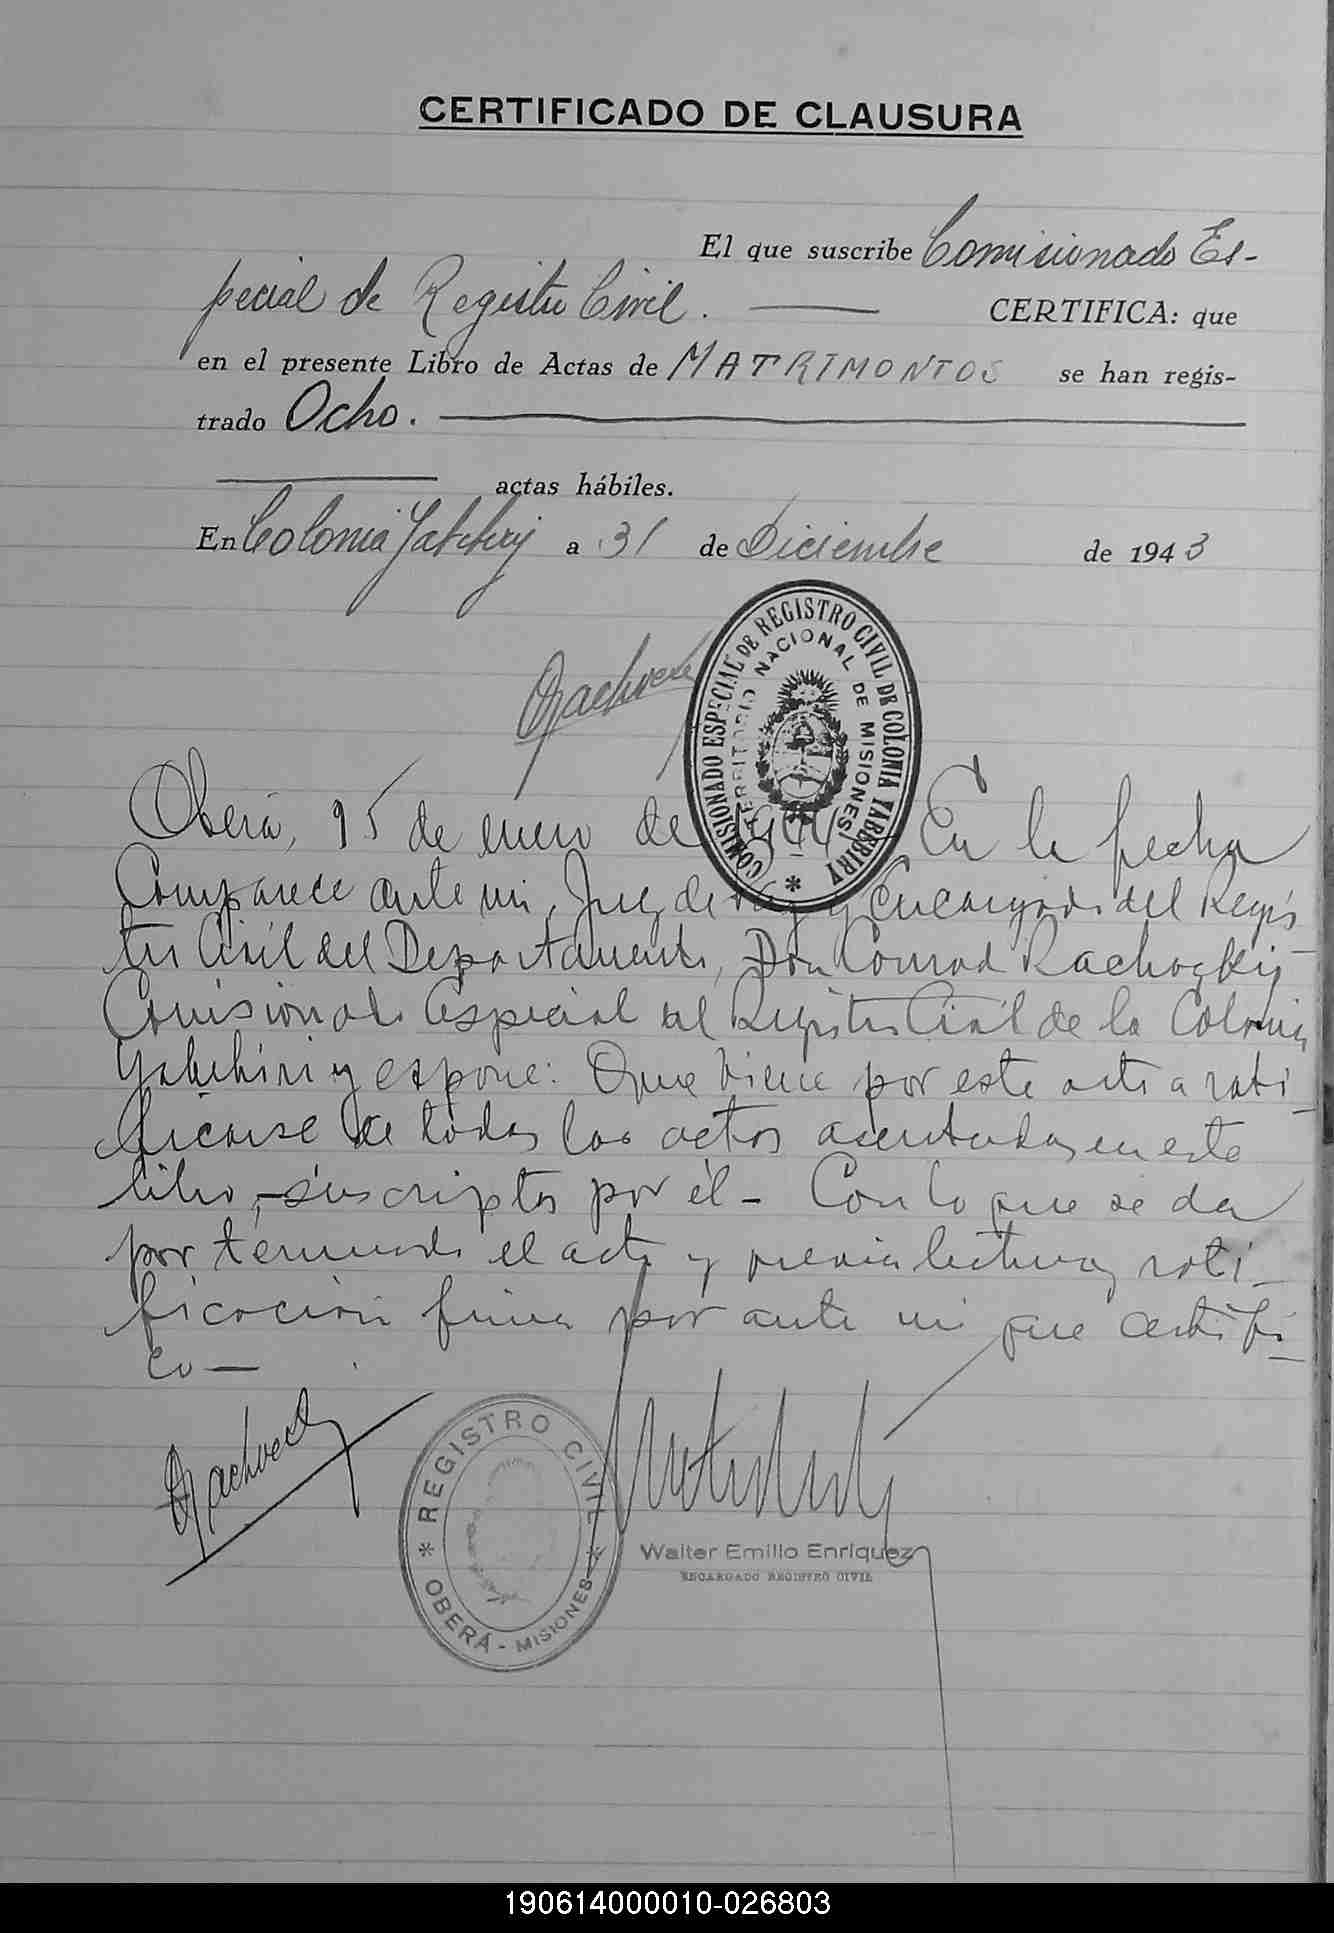 CERTIFICADO DE CLAUSURA
El que suscribe Comisionado Es-
pecial de Registro Civil. CERTIFICA: que
en el presente Libro de Actas de MATRIMONIOS se han regis-
trado Ocho.
actas hábiles.
En Colonia Yabebiry a 31 de Diciembre de 1943
COMISIONADO ESPECIAL DE REGISTRO CIVIL DE COLONIA YABEBIRY
TERRITORIO NACIONAL DE MISIONES
Oberá, 15 de enero de 1944 En la fecha
Comparece ante mi, Juez de Paz y Encargado del Regis
tro Civil del Departamento, Don Conrad
Comisionado Especial del Registro Civil de la Colonia
Yabebiri y expone: Que viene por este acto a rati-
ficarse de todas las actas asentadas en este
libro, suscriptas por él - Con lo que se da
por terminado el acto y previa lectura y rati-
ficación firma por ante mi que certifi-
co -
REGISTRO CIVIL
OBERÁ - MISIONES
Walter Emilio Enriquez
ENCARGADO REGISTRO CIVIL
190614000010-026803